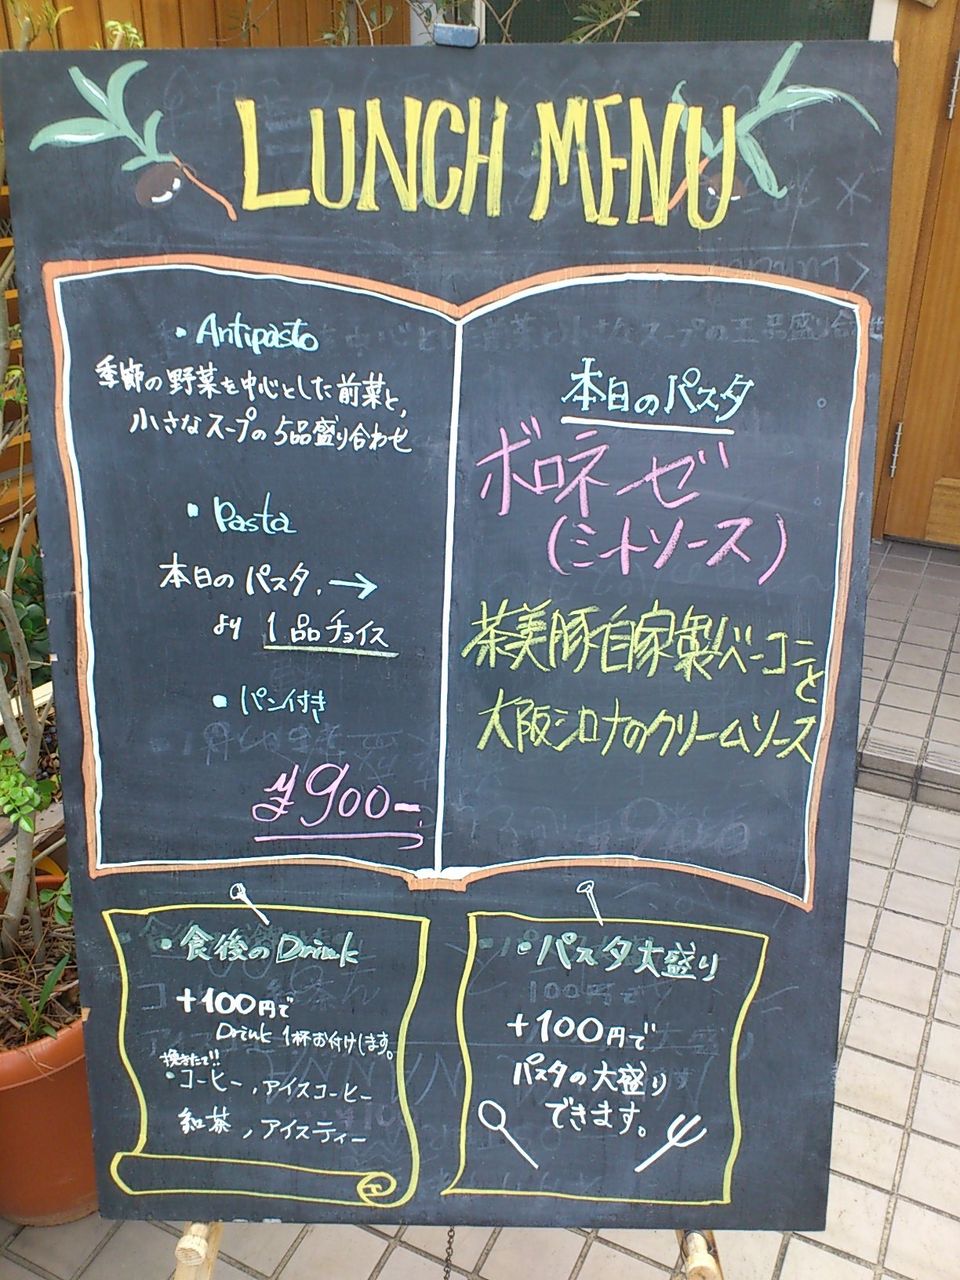 LUNCH MENU
・Antipasto
季節の野菜を中心とした前菜と,
小さなスープの5品盛り合わせ
・Pasta
本日のパスタ, →
より 1品チョイス
・パン付き
¥900-
本日のパスタ
ボロネーゼ
(ミートソース)
茶美豚自家製ベーコンと
大阪シロナのクリームソース
・食後のDrink
+100円で
Drink 1杯お付けします。
挽きたて!!
・コーヒー,アイスコーヒー
紅茶,アイスティー
・パスタ大盛り
+100円で
パスタの大盛り
できます。